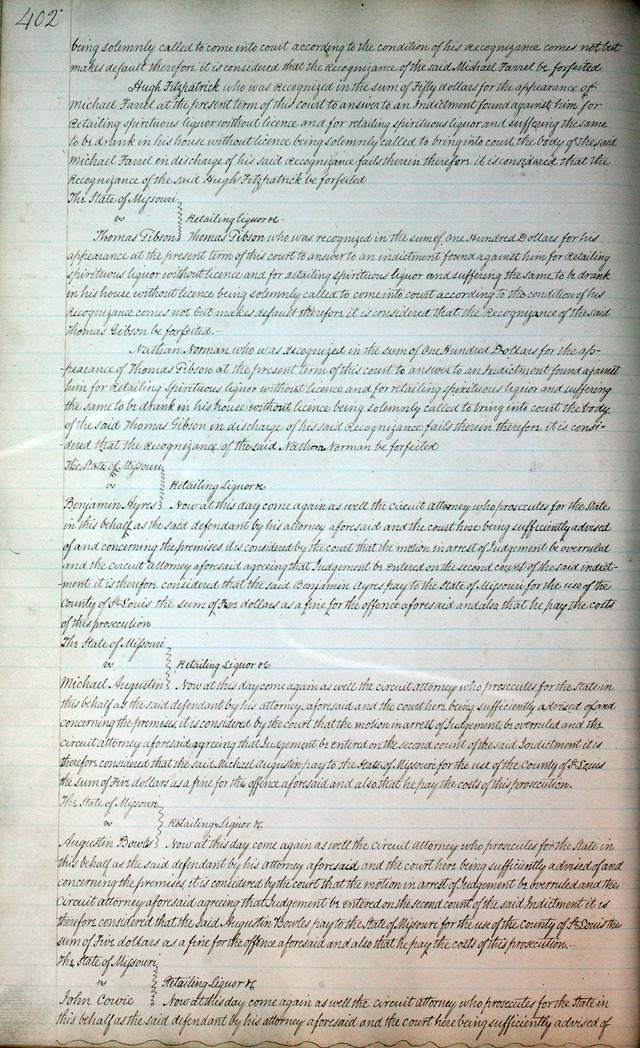 402
being solemnly called to come into court according to the condition of his Recognizance comes not but
makes default therefore it is considered that the Recognizance of the said Michael Farrel be forfeited
Hugh Fitzpatrick who was Recognized in the sum of Fifty dollars for the appearance of
Michael Farrel at the present term of this court to answer to an Indictment found against him for
Retailing spirituous liquor without licence and for retailing spirituous liquor and suffering the same
to be drank in his house without licence being solemnly called to bring into court the body of the said
Michael Farrel in discharge of his said Recognizance fails therein therefore it is considered that the
Recognizance of the said Hugh Fitzpatrick be forfeited
The State of Missouri
vs Retailing liquor &c -
Thomas Gibson Thomas Gibson who was recognized in the sum of One Hundred Dollars for his
appearance at the present term of this court to answer to an indictment found against him for Retailing
spirituous liquor without licence and for retailing spirituous liquor and suffering the same to be drank
in his house without licence being solemnly called to come into court according to the condition of his
Recognizance comes not but makes default therefore it is considered that the Recognizance of the said
Thomas Gibson be forfeited. -
Nathan Norman who was Recognized in the sum of One Hundred Dollars for the ap-
-pearance of Thomas Gibson at the present term of this court to answer to an Indictment found against
him for Retailing spirituous liquor without licence and for retailing spirituous liquor and suffering
the same to be drank in his house without licence being solemnly called to bring into court the body
of the said Thomas Gibson in discharge of his said Recognizance fails therein therefore it is consi-
dered that the Recognizance of the said Nathan Norman be forfeited
The State of Missouri
vs Retailing Liquor &c
Benjamin Ayres Now at this day come again as well the circuit attorney who prosecutes for the State
in this behalf as the said defendant by his attorney aforesaid and the court here being sufficiently advised
of and concerning the premises it is considered by the court that the motion in arrest of Judgement be overruled
and the circuit attorney aforesaid agreeing that Judgement be entered on the second count of the said indict-
-ment it is therefore considered that the said Benjamin Ayres pay to the State of Missouri for the use of the
County of St Louis the sum of Five dollars as a fine for the offence aforesaid and also that he pay the costs
of this prosecution
The State of Missouri
vs Retailing Liquor &c
Michael Augustin Now at this day come again as well the circuit attorney who prosecutes for the State in
this behalf as the said defendant by his attorney aforesaid and the court here being sufficiently advised of and
concerning the premises, it is considered by the court that the motion in arrest of Judgement be overruled and the
circuit attorney aforesaid agreeing that Judgement be entered on the second count of the said Indictment it is
therefore considered that the said Michael Augustin pay to the State of Missouri for the use of the County of St Louis
the sum of Five dollars as a fine for the offence aforesaid and also that he pay the costs of this prosecution.
The State of Missouri
vs Retailing Liquor &c
Augustin Bowles Now at this day come again as well the circuit attorney who prosecutes for the State in
this behalf as the said defendant by his attorney aforesaid and the court here being sufficiently advised of and
concerning the premises it is considered by the court that the motion in arrest of Judgement be overruled and the
Circuit attorney aforesaid agreeing that Judgement be entered on the second count of the said Indictment it is
therefore considered that the said Augustin Bowles pay to the State of Missouri for the use of the County of St Louis the
sum of Five dollars as a fine for the offence aforesaid and also that he pay the costs of this prosecution. -
The State of Missouri
vs Retailing Liquor &c
John Cowie Now at this day come again as well the circuit attorney who prosecutes for the State in
this behalf as the said defendant by his attorney aforesaid and the court here being sufficiently advised of